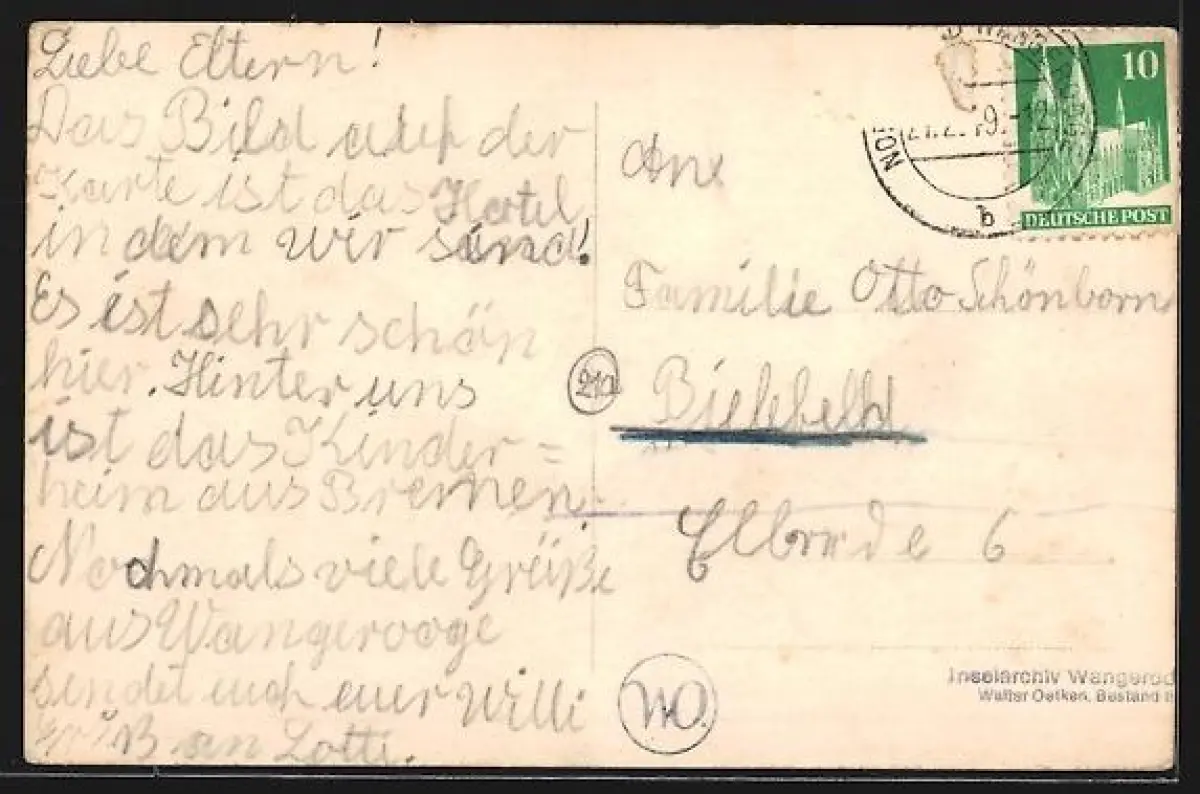 Liebe Eltern!
Das Bild auf der
Karte ist das Hotel
in dem wir sind!
Es ist sehr schön
hier. Hinter uns
ist das Kinder=
heim aus Bremen.
Nochmals viele Grüße
aus Wangerooge
sendet euch euer Willi
Gruß an Lotti.
10
DEUTSCHE POST
b
An
Familie Otto Schönborn
21a
Bielefeld
6
WO.
Inselarchiv
Walter Oetken, Bestand